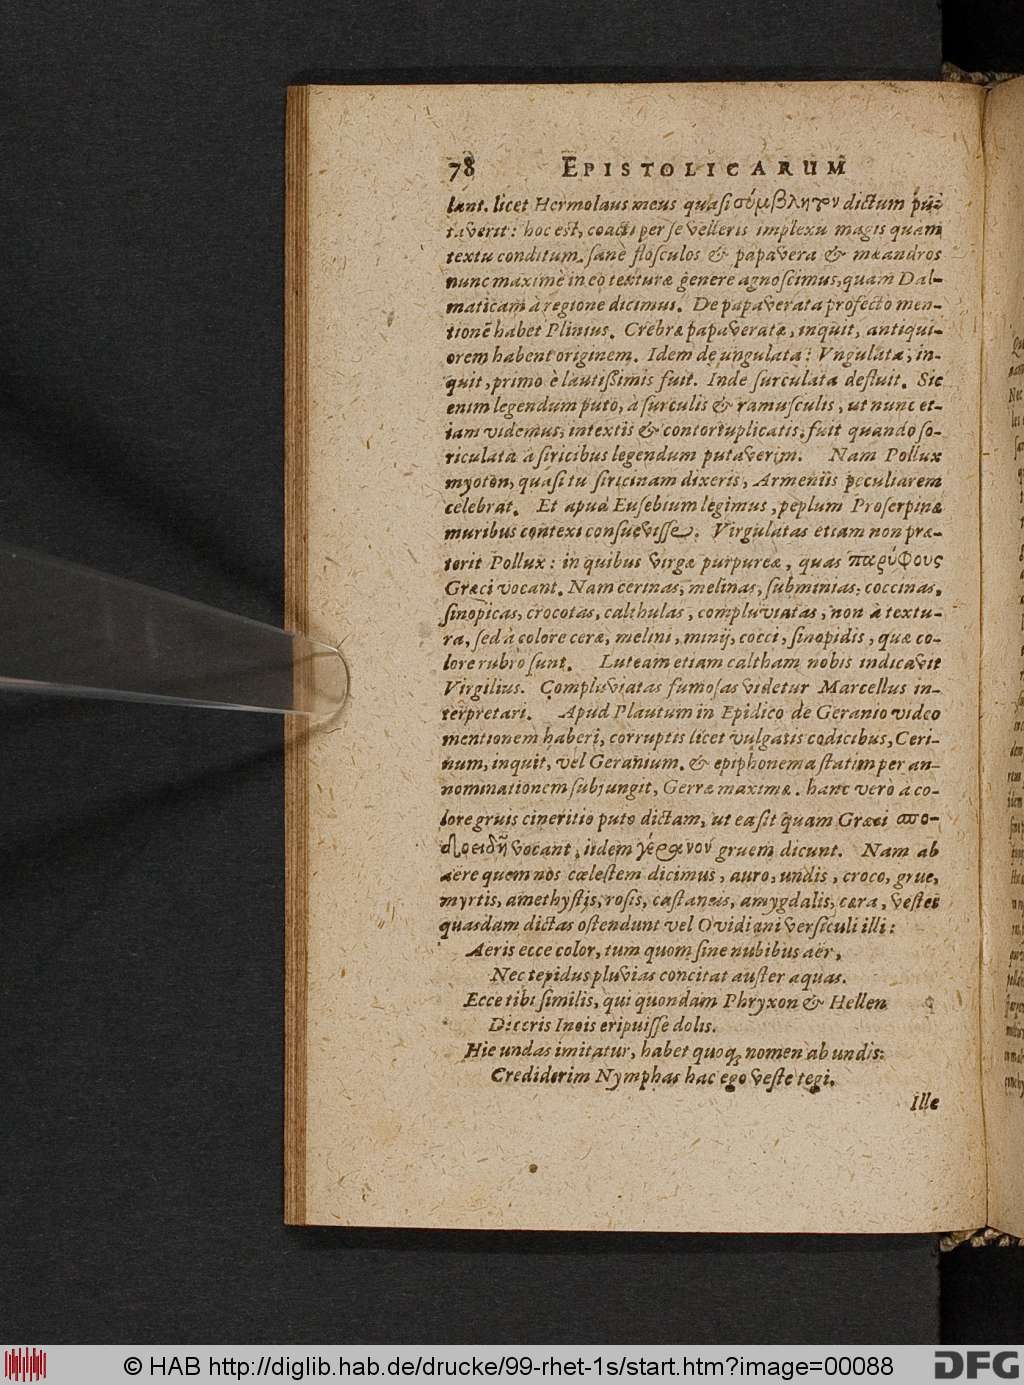 78 EPISTOLICARUM
lant. licet Hermolaus meus quasi σύμβλητον dictum pu-
taverit: hoc est, coacti per se velleris implexu magis quam
textu conditum. sanè flosculos & papavera & mæandros
nunc maximè in eo texturæ genere agnoscimus, quam Dal-
maticam à regione dicimus. De papaverata profectò men-
tionē habet Plinius. Crebræ papaveratæ, inquit, antiqui-
orem habent originem. Idem de ungulata: Vngulata, in-
quit, primo è lautißimis fuit. Inde surculata defluit. Sic
enim legendum puto, à surculis & ramusculis, ut nunc et-
iam videmus, intextis & contortuplicatis, fuit quando so-
riculata à siricibus legendum putaverim. Nam Pollux
myoton, quasi tu siricinam dixeris, Armeniis peculiarem
celebrat. Et apud Eusebium legimus, peplum Proserpinæ
muribus contexi consuevisse. Virgulatas etiam non præ-
terit Pollux: in quibus virgæ purpureæ, quas παρύφους
Græci vocant. Nam cerinas, melinas, subminias, coccinas,
sinopicas, crocotas, calthulas, compluviatas, non à textu-
ra, sed à colore ceræ, melini, minij, cocci, sinopidis, quæ co-
lore rubro sunt. Luteam etiam caltham nobis indicavit
Virgilius. Compluviatas fumosas videtur Marcellus in-
terpretari. Apud Plautum in Epidico de Geranio video
mentionem haberi, corruptis licet vulgatis codicibus, Ceri-
num, inquit, vel Geranium. & epiphonema statim per an-
nominationem subjungit, Gerræ maximæ. hanc verò à co-
lore gruis cineritio puto dictam, ut ea sit quam Græci σπο-
δοειδῆ vocant, iidem γέρανον gruem dicunt. Nam ab
aëre quem nos cœlestem dicimus, auro, undis, croco, grue,
myrtis, amethystis, rosis, castaneis, amygdalis, cera, vestes
quasdam dictas ostendunt vel Ovidiani versiculi illi:
Aeris ecce color, tum quom sine nubibus aër,
Nec tepidus pluvias concitat auster aquas.
Ecce tibi similis, qui quondam Phryxon & Hellen
Diceris Inois eripuisse dolis.
Hic undas imitatur, habet quoq; nomen ab undis:
Crediderim Nymphas hac ego veste tegi.
Ille
© HAB http://diglib.hab.de/drucke/99-rhet-1s/start.htm?image=00088
DFG